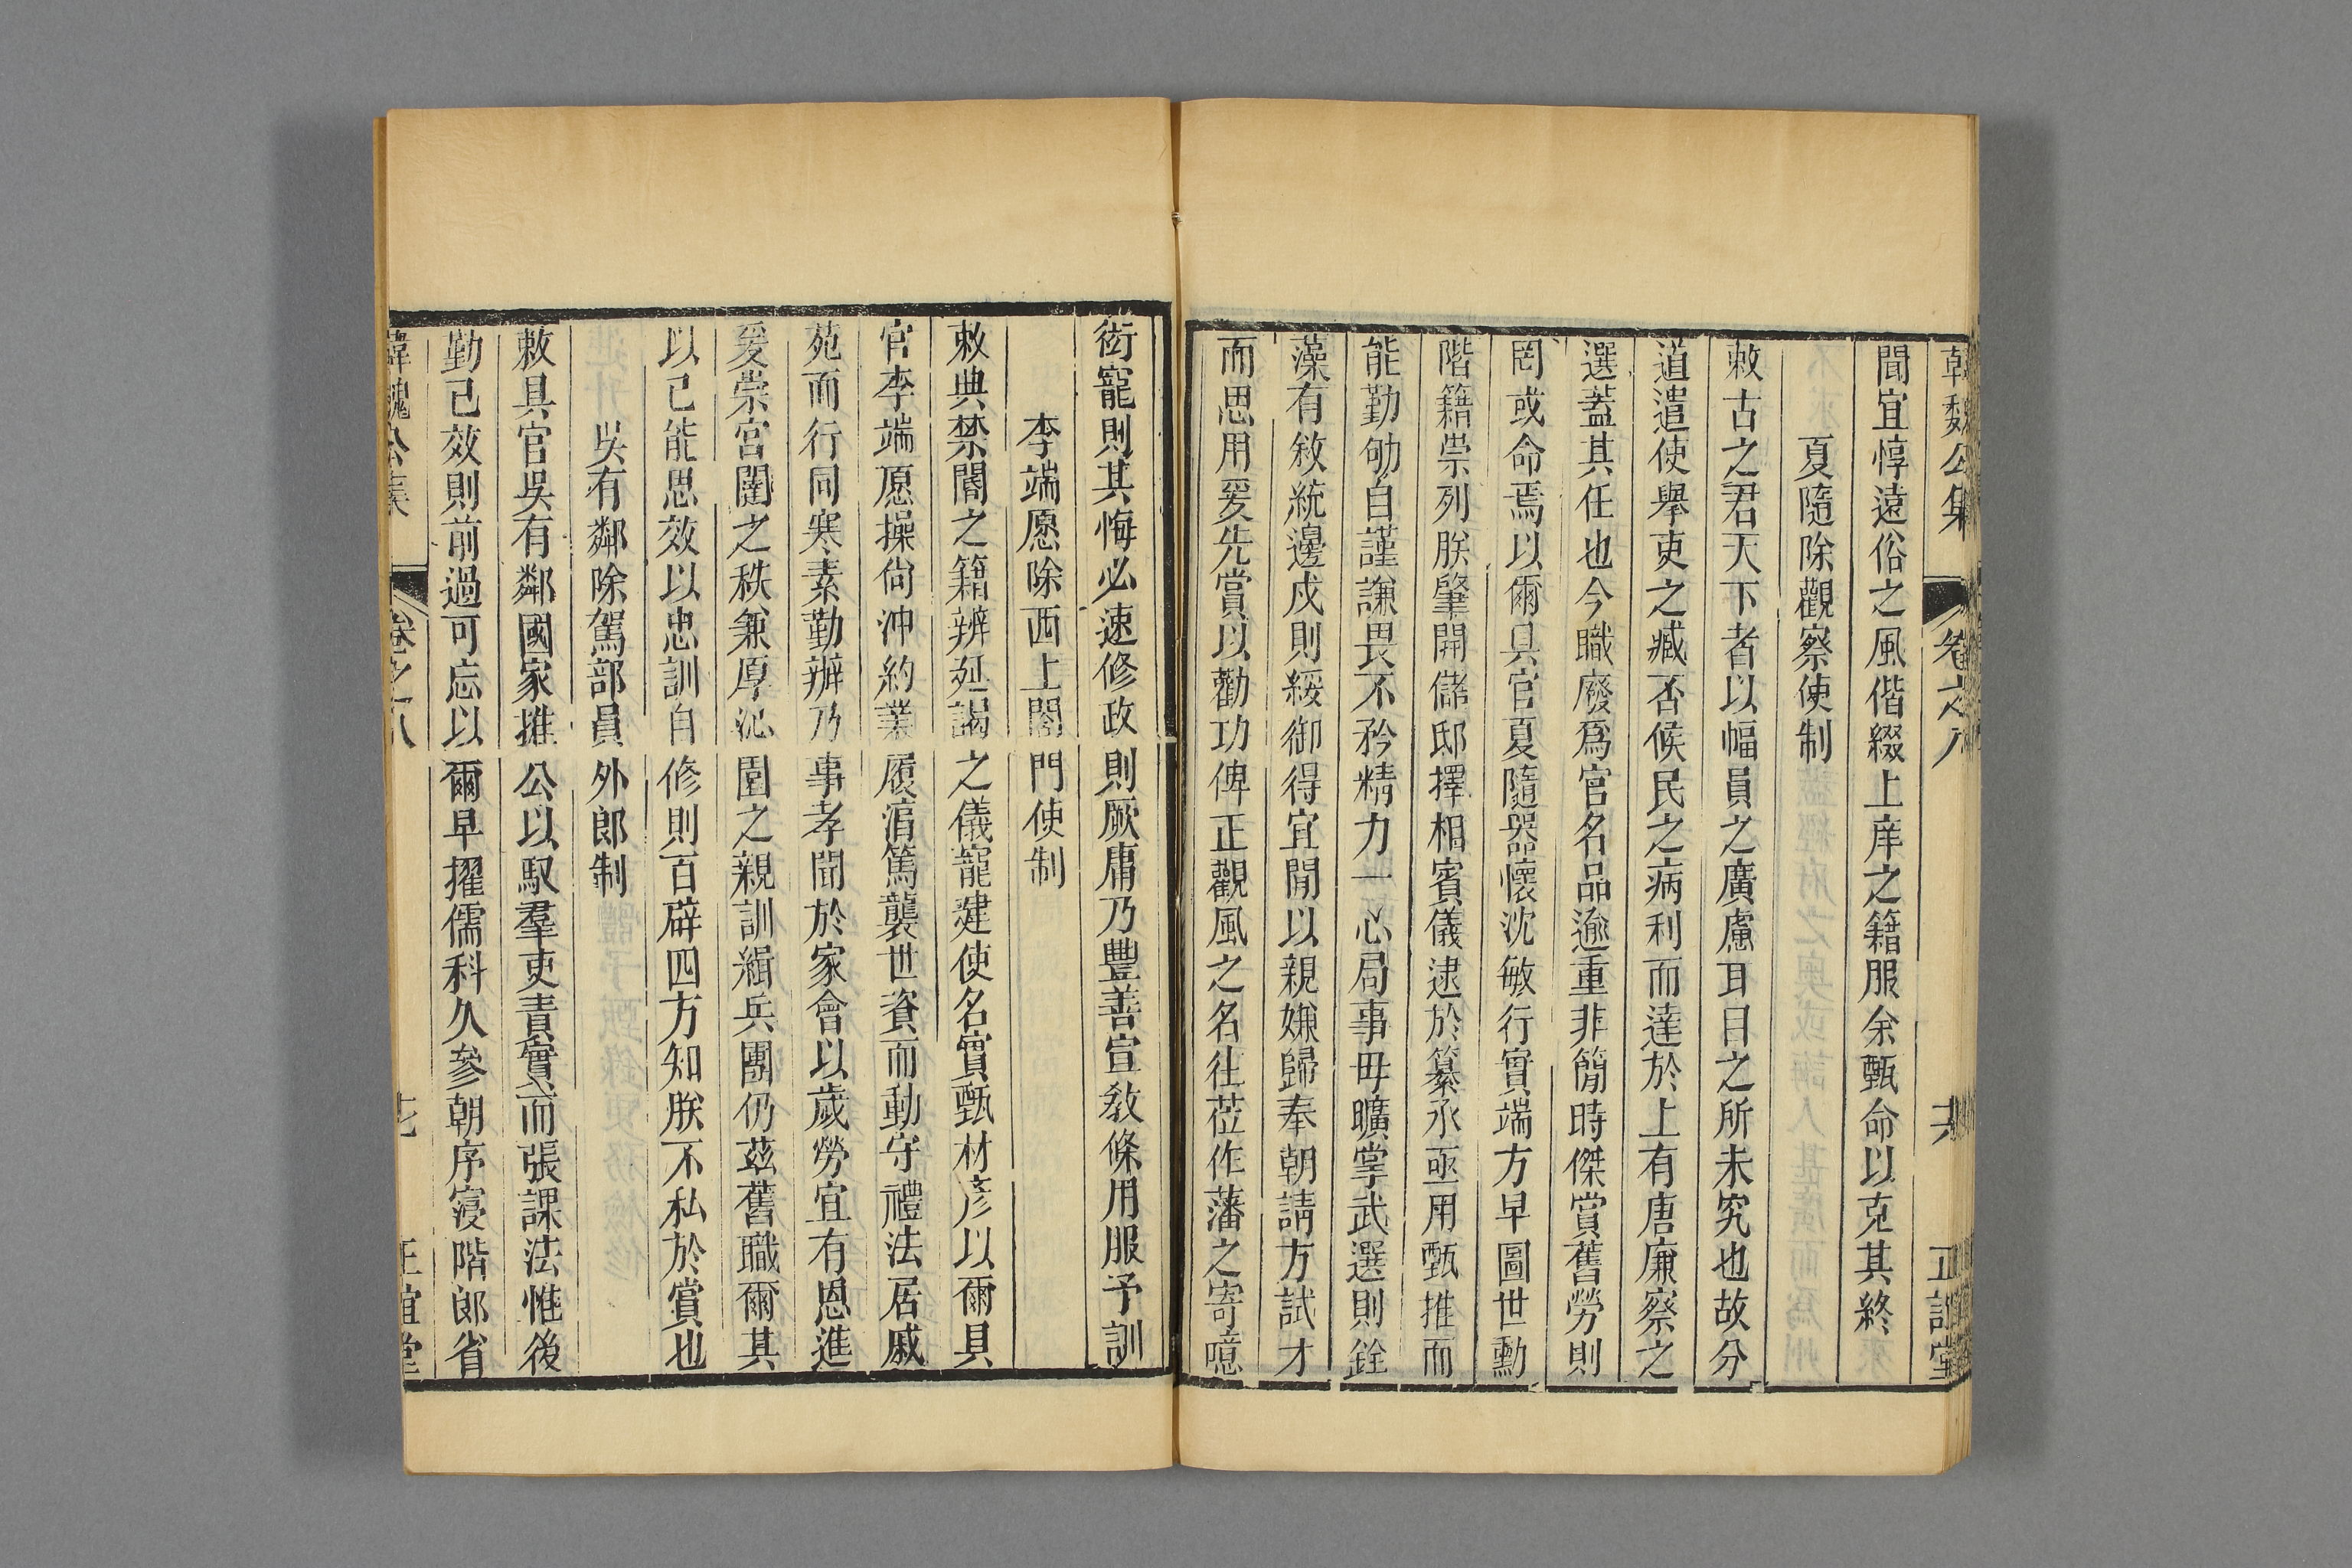 韓魏公集 卷之八 共 正誼堂
聞宜惇遠俗之風偕綴上庠之籍服余甄命以克其終
夏隨除觀察使制
敕古之君天下者以幅員之廣慮耳目之所未究也故分
道遣使舉吏之臧否候民之病利而達於上有唐廉察之
選蓋其任也今職廢爲官名品逾重非簡時傑賞舊勞則
罔或命焉以爾具官夏隨器懷沈敏行實端方早圖世勳
階籍崇列朕肇開儲邸擇相賓儀逮於纂承亟用甄推而
能勤劬自謹謙畏不矜精力一心局事毋曠掌武選則銓
藻有敘統邊戍則綏御得宜閒以親嫌歸奉朝請方試才
而思用爰先賞以勸功俾正觀風之名往莅作藩之寄噫
銜寵則其悔必速修政則厥庸乃豐善宣敎條用服予訓
李端愿除西上閤門使制
敕典禁閽之籍辨延謁之儀寵建使名實甄材彥以爾具
官李端愿操尙沖約業履淯篤襲世資而動守禮法居戚
苑而行同寒素勤辦乃事孝聞於家會以歲勞宜有恩進
爰崇宮闈之秩兼厚沁園之親訓緝兵團仍茲舊職爾其
以己能思效以忠訓自修則百辟四方知朕不私於賞也
吳有鄰除駕部員外郎制
敕具官吳有鄰國家推公以馭羣吏責實而張課法惟後
勤已效則前過可忘以爾早擢儒科久參朝序寖階郎省
韓魏公集 卷之八 七 正誼堂